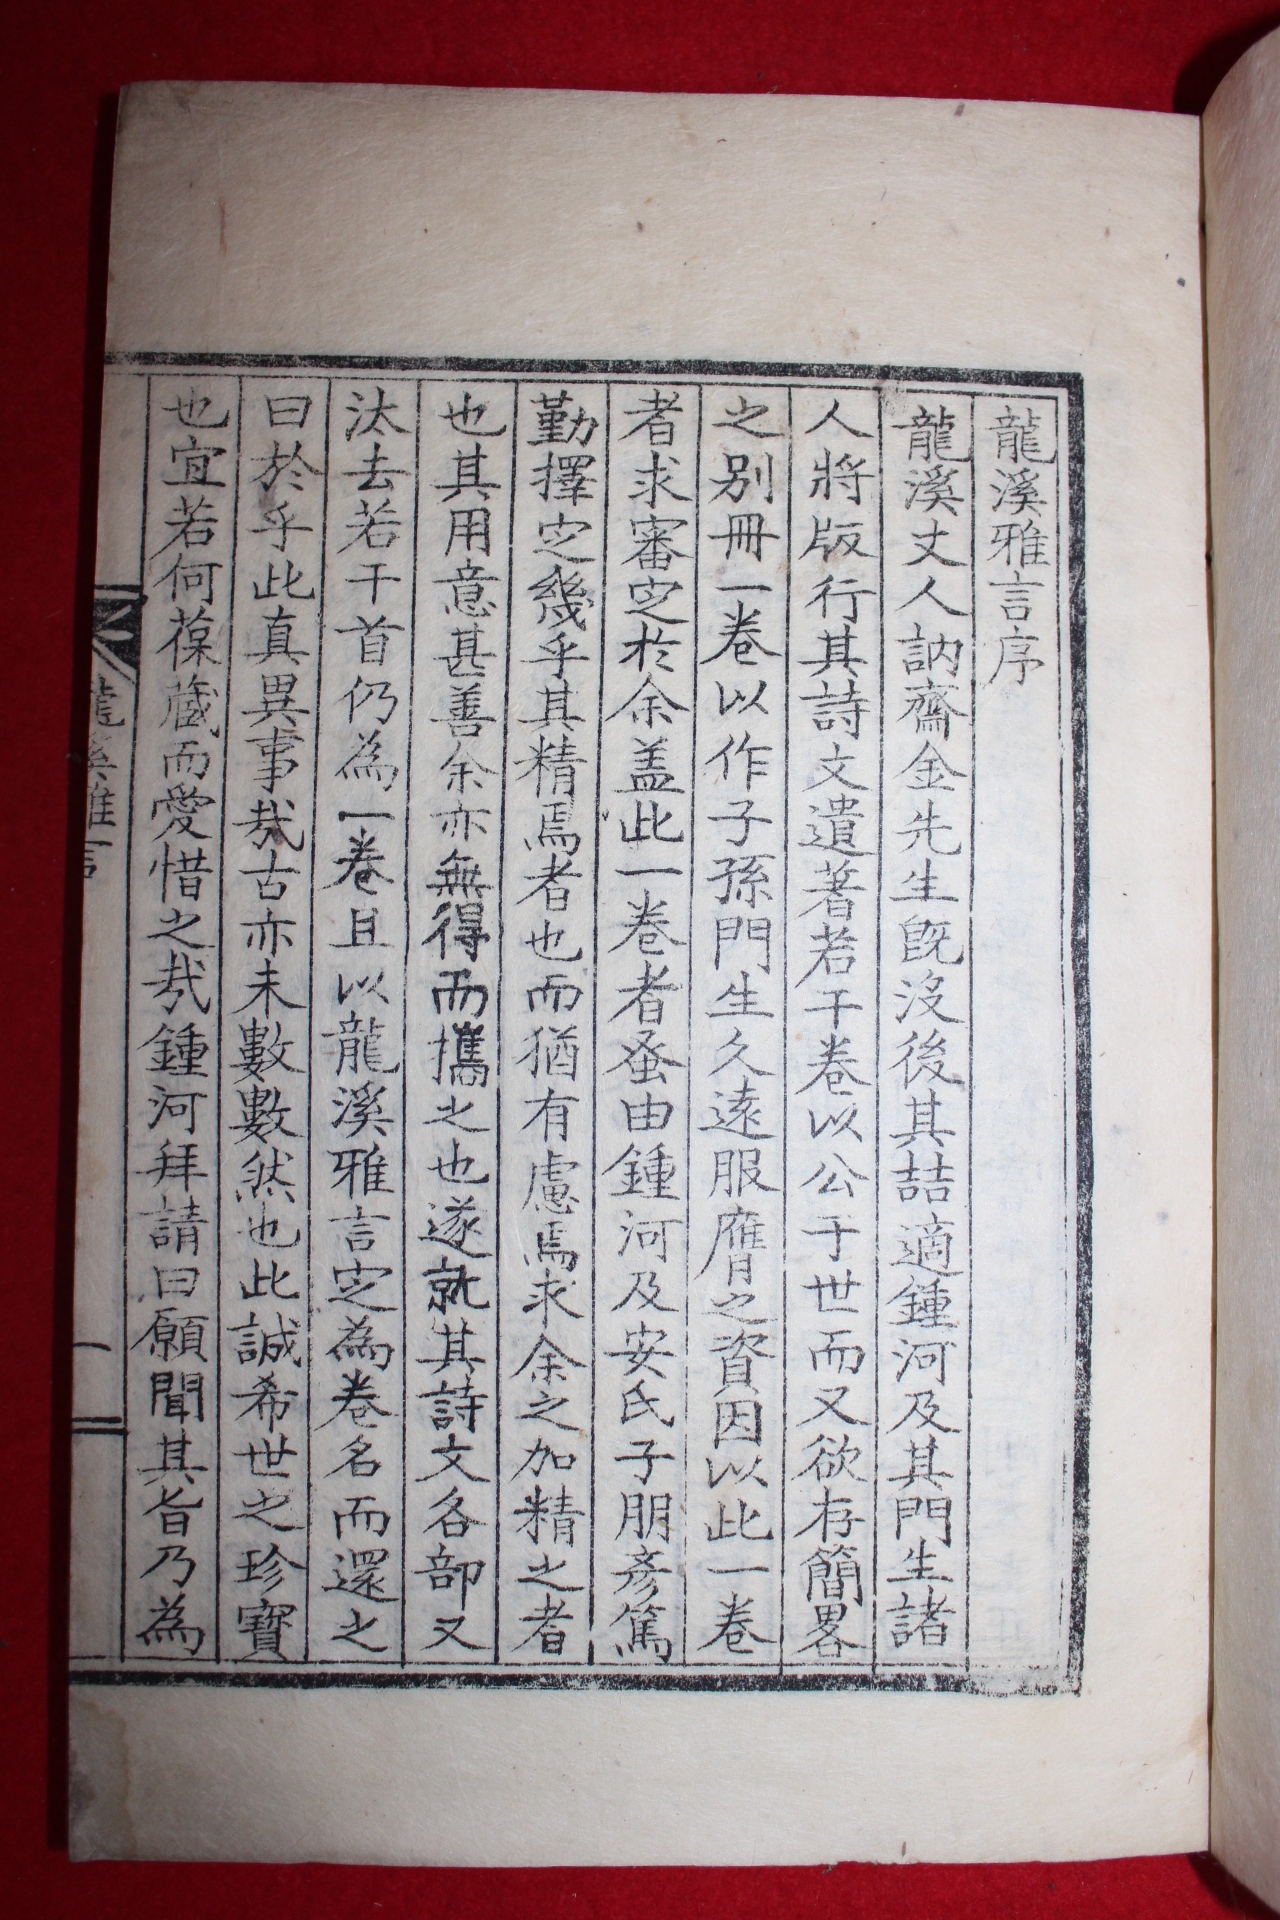 龍溪雅言序
龍溪丈人訥齋金先生旣沒後其喆適鍾河及其門生諸
人將版行其詩文遺著若干卷以公于世而又欲存簡畧
之别冊一卷以作子孫門生久遠服膺之資因以此一卷
者求審定於余盖此一卷者蚤由鍾河及安氏子朋彥篤
勤擇定幾乎其精焉者也而猶有慮焉求余之加精之者
也其用意甚善余亦無得而攜之也遂就其詩文各部又
汰去若干首仍為一卷且以龍溪雅言定為卷名而還之
曰於乎此真異事哉古亦未數數然也此誠希世之珍寶
也宜若何葆蔵而愛惜之哉鍾河拜請曰願聞其旨乃為
龍溪雅言
一